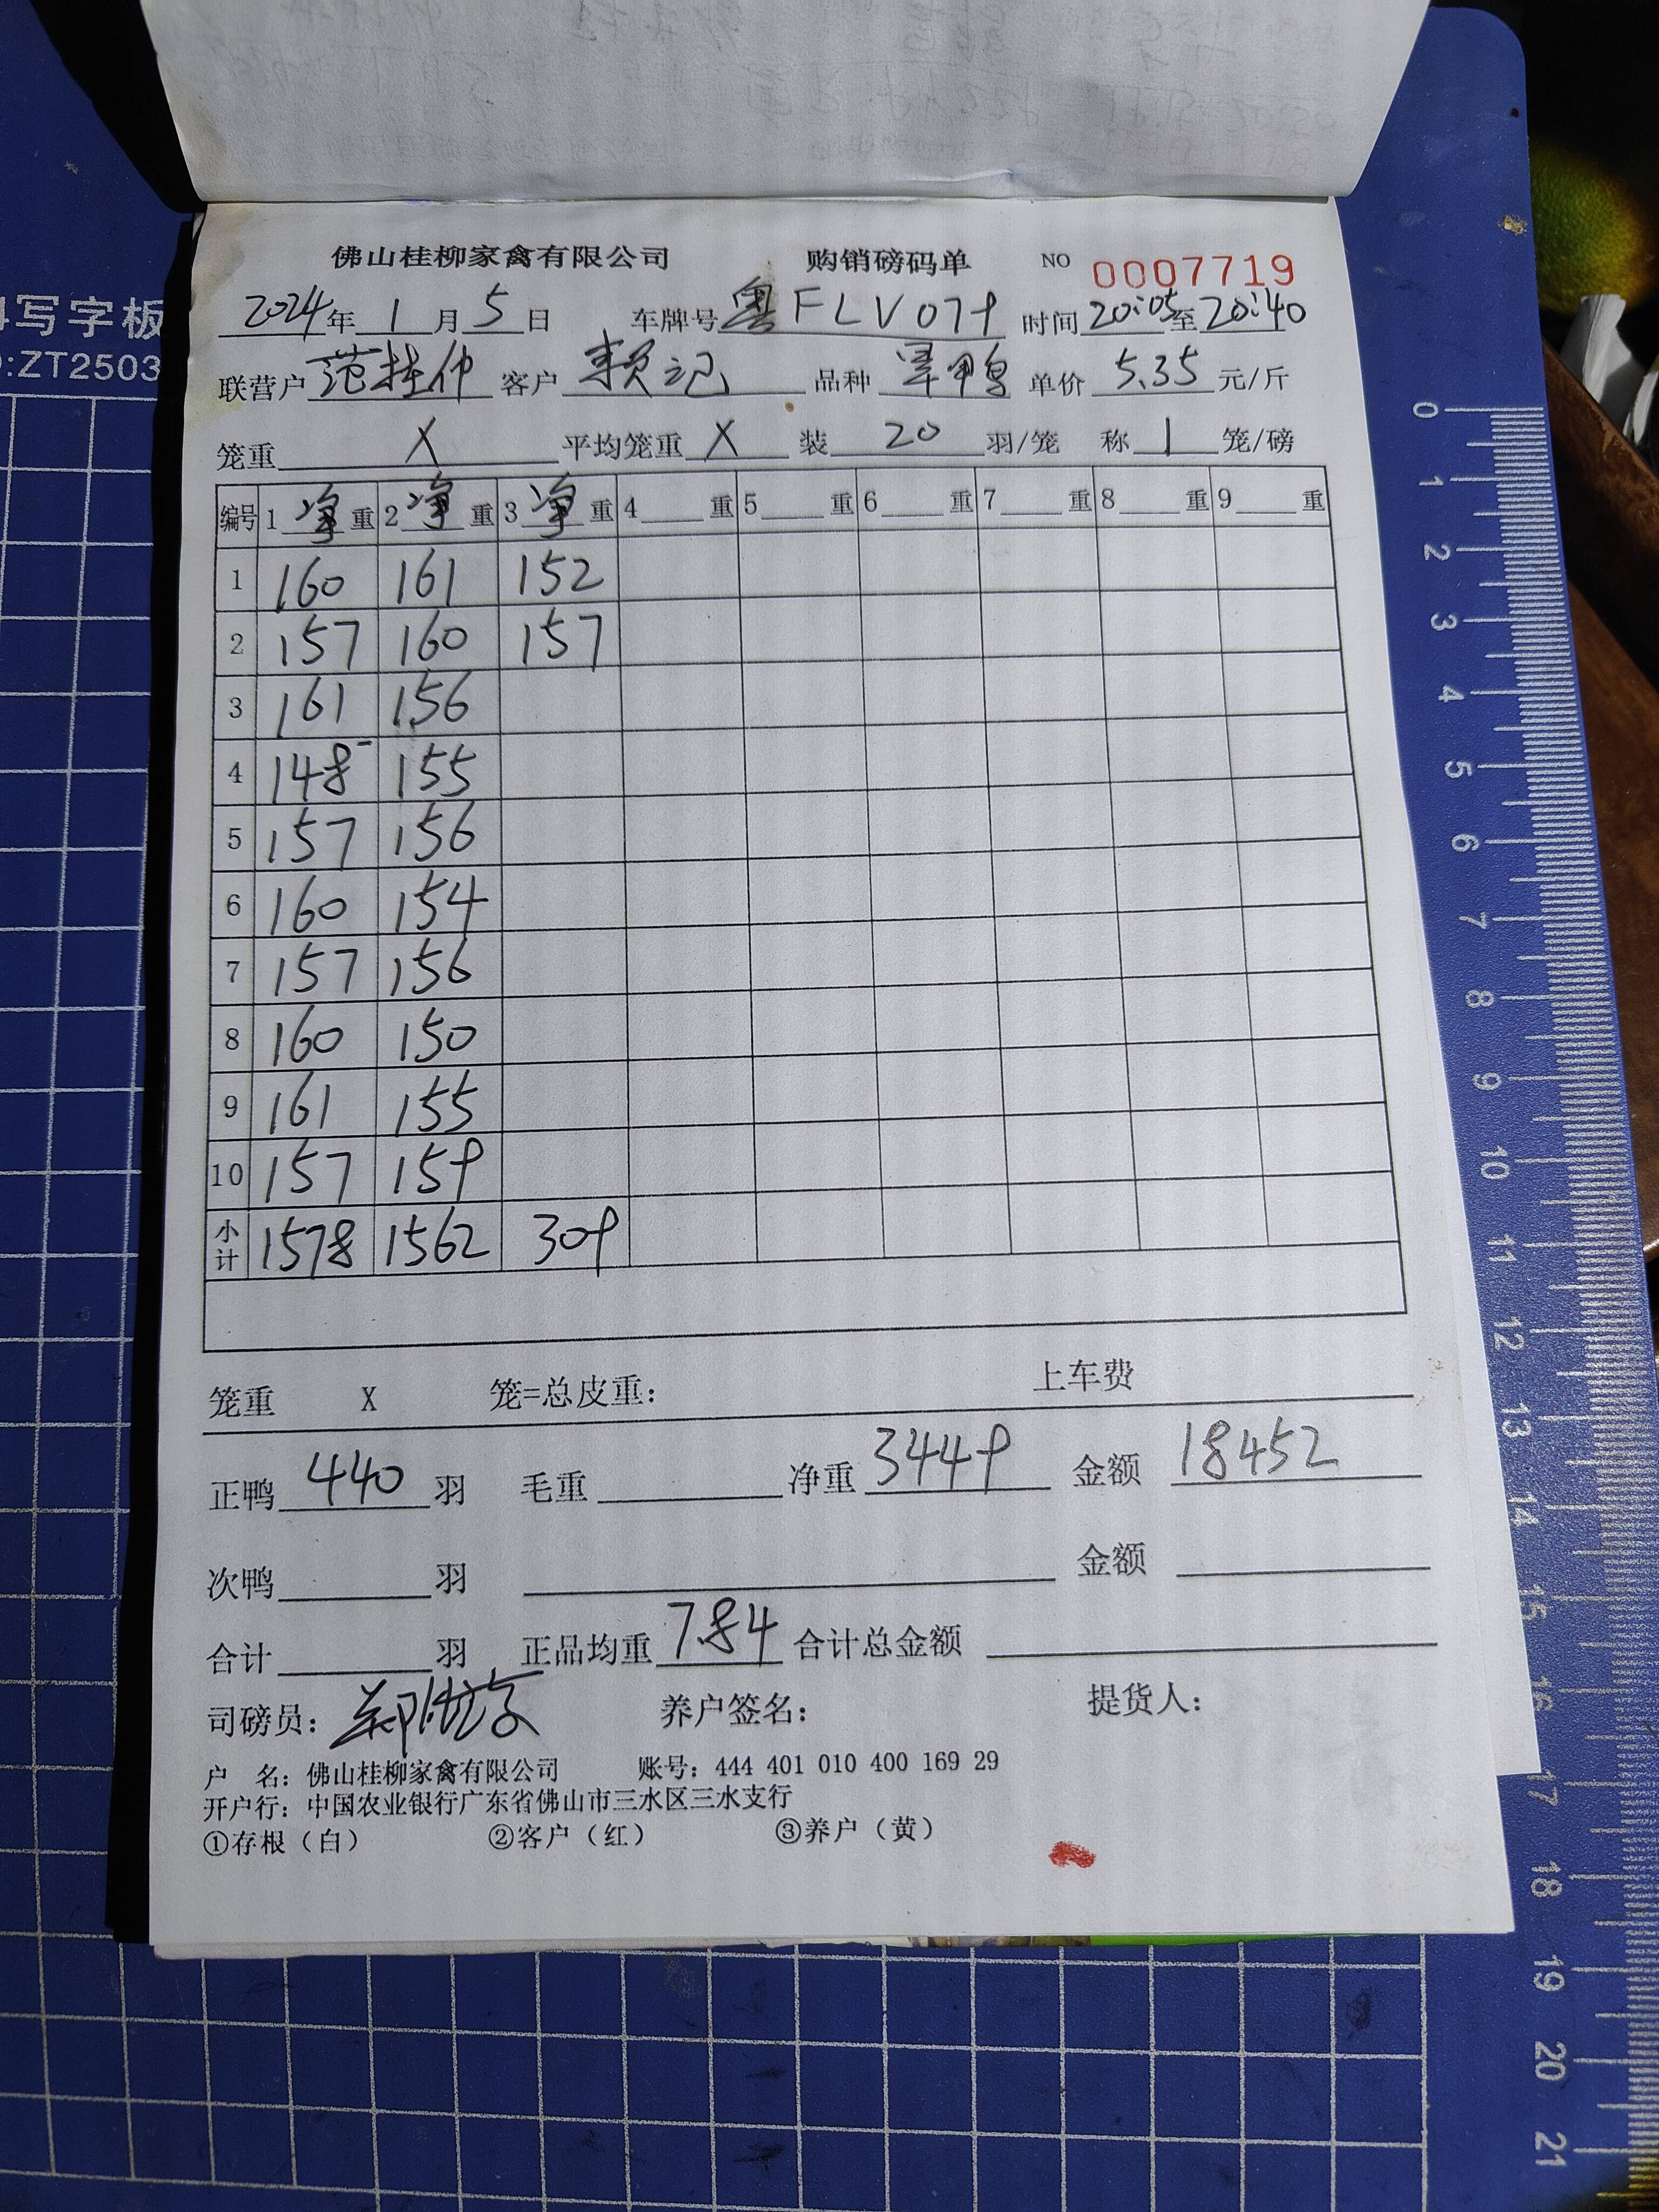 4写字板
D:ZT2503
佛山桂柳家禽有限公司 购销磅码单 NO 0007719
2024年1月5日 车牌号粤FLV079 时间20:05至20:40
联营户范桂仲 客户赖记 品种 鸭 单价5.35元/斤
笼重X平均笼重X装20羽/笼 称1笼/磅
编号 1净重 2净重 3净重 4 重 5 重 6 重 7 重 8 重 9 重
1 160 161 152
2 157 160 157
3 161 156
4 148- 155
5 157 156
6 160 154
7 157 156
8 160 150
9 161 155
10 157 159
小计 1578 1562 309
笼重 X 笼=总皮重： 上车费
正鸭440羽 毛重 净重3449 金额18452
次鸭 羽 金额
合计 羽 正品均重7.84合计总金额
司磅员： 养户签名： 提货人：
户 名：佛山桂柳家禽有限公司 账号：444 401 010 400 169 29
开户行：中国农业银行广东省佛山市三水区三水支行
①存根（白） ②客户（红） ③养户（黄）
0
1
2
3
4
5
6
7
8
9
10
11
12
13
14
15
16
17
18
19
20
21